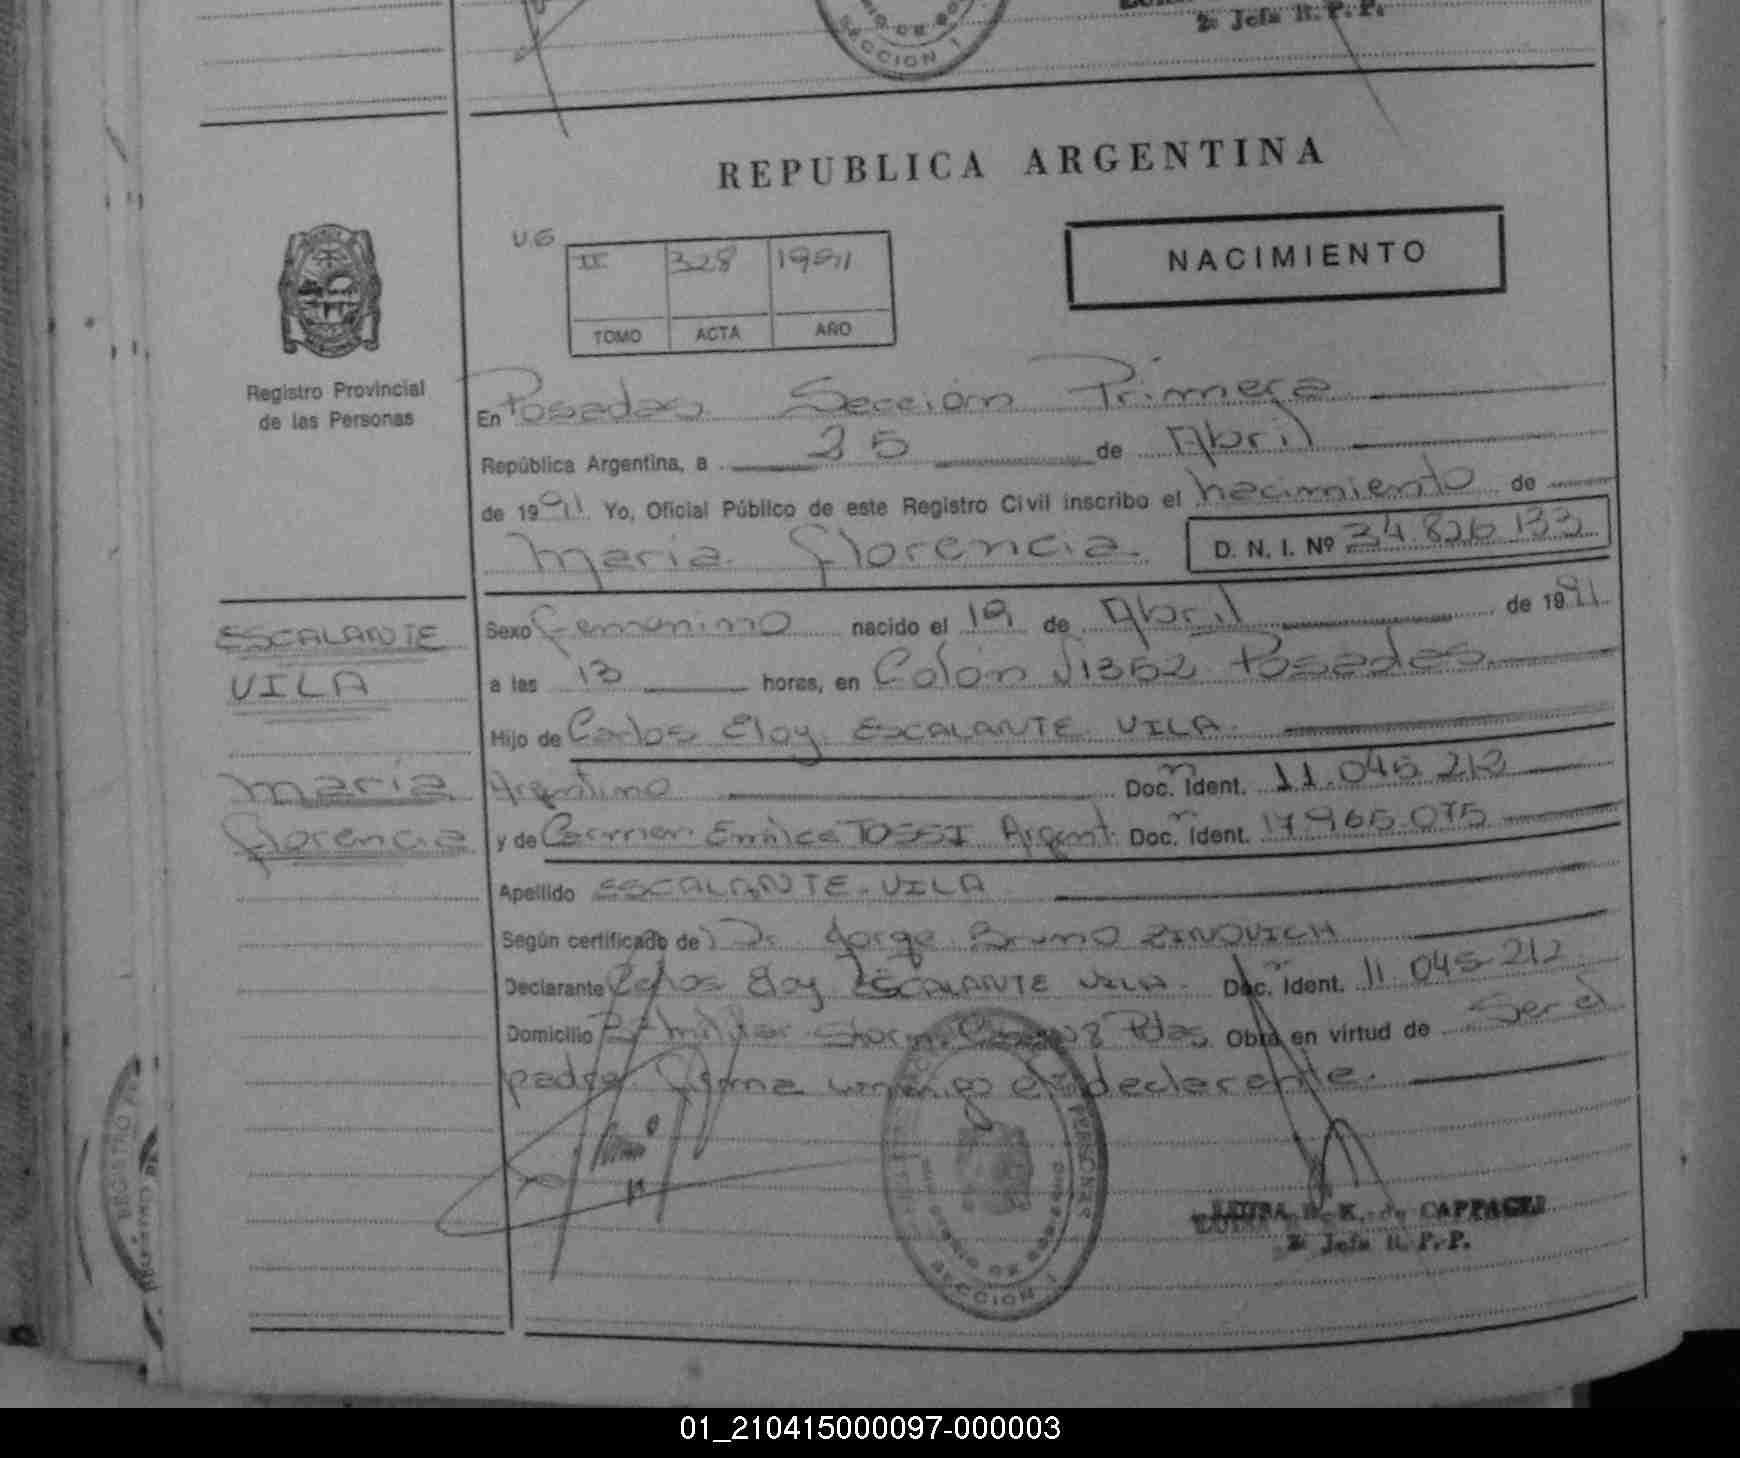 2ª Jefa R. P. P.
SECCION 1
REPUBLICA ARGENTINA
UG
II 328 1991
TOMO ACTA AÑO
NACIMIENTO
Registro Provincial
de las Personas
En Posadas Sección Primera
República Argentina, a 25 de Abril
de 1991 Yo, Oficial Público de este Registro Civil inscribo el nacimiento de
María Florencia D. N. I. Nº 34.826.133
Sexo femenino nacido el 19 de Abril de 1991
a las 13 horas, en Colón 1352 Posadas
Hijo de Carlos Eloy ESCALANTE VILA
Argentino Doc. Ident. 11.045.212
y de Carmen Emilce TOSSI Argent. Doc. Ident. 17.965.075
Apellido ESCALANTE VILA
Según certificado de Dr. Jorge Bruno ZINOVICH
Declarante Carlos Eloy ESCALANTE VILA Doc. Ident. 11.045.212
Domicilio Bº militar 8 Pdas Obra en virtud de Ser el
padre. Firma conmigo el declarante.
ESCALANTE
VILA
María
Florencia
PERSONAS
SECCION 1
LUISA B. K. de CAPPACEI
2ª Jefa R. P. P.
01_210415000097-000003